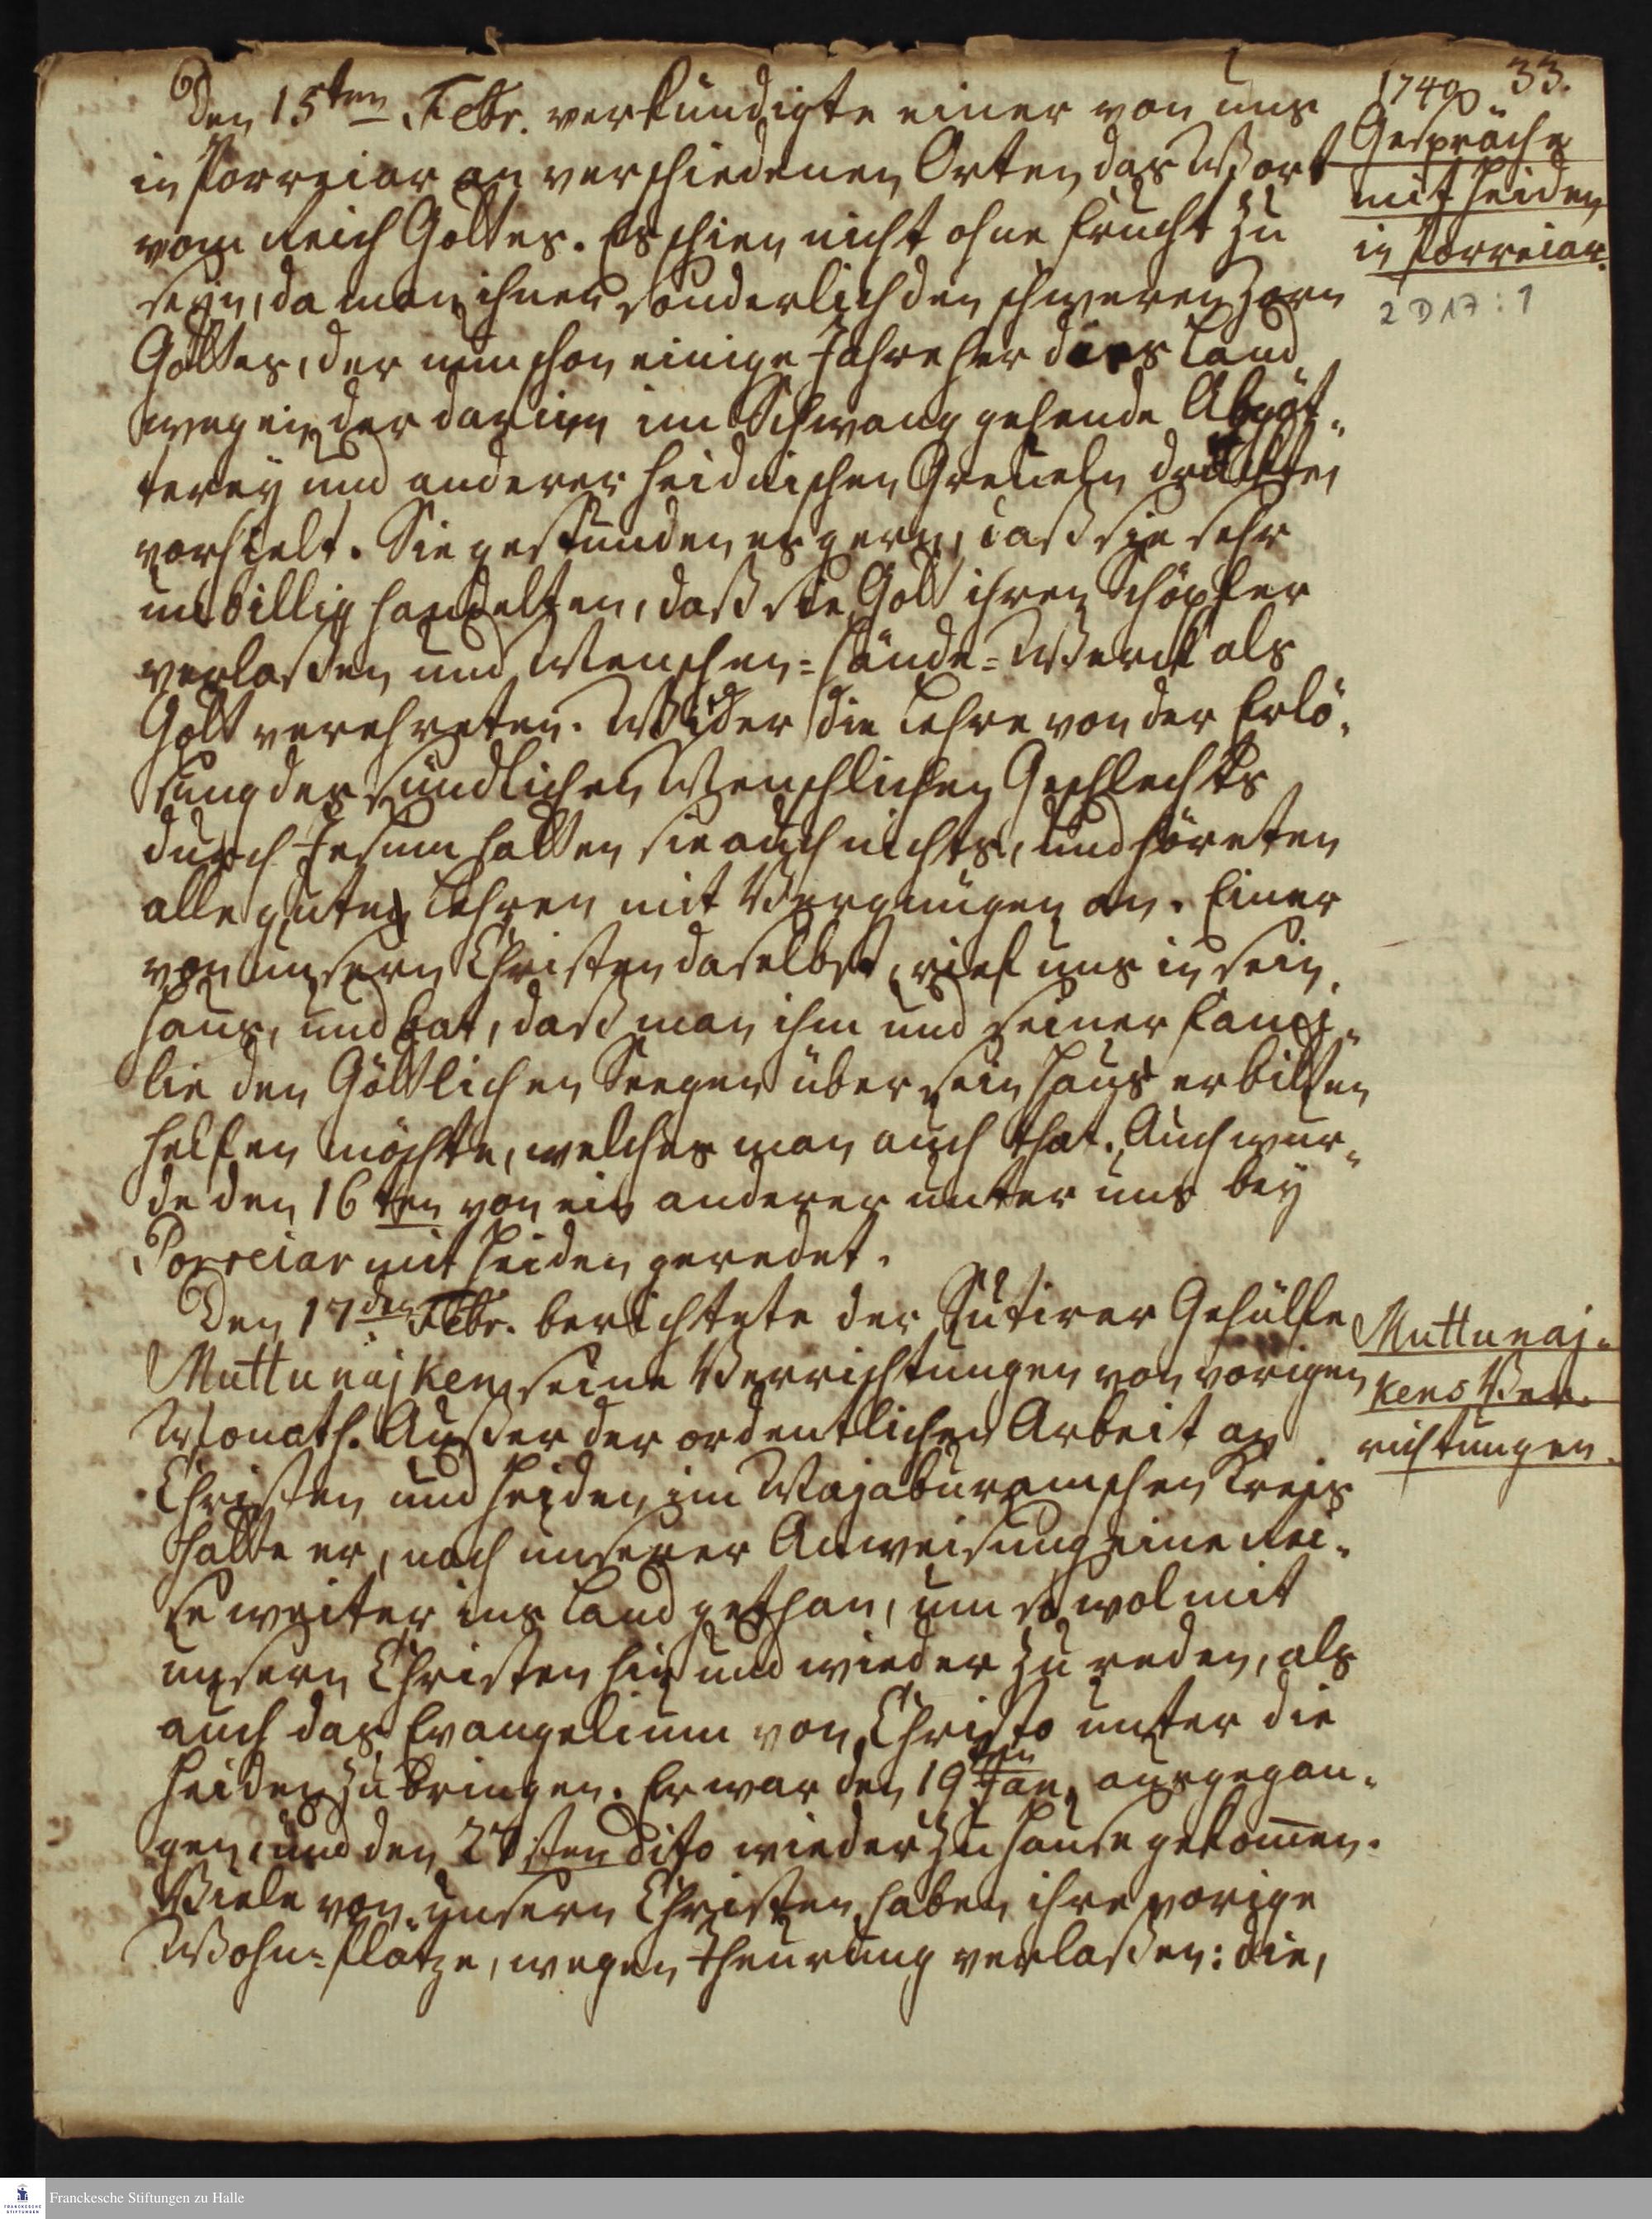 1740. 33.
Den 15ten Febr. verkündigte einer von uns
in Porreiar an verschiedenen Orten das Wort
vom Reich Gottes. Es schien nicht ohne Frucht zu
seyn, da man ihnen sonderlich den schweren Zorn
Gottes, der nun schon einige Jahre her dies Land
wegen der darinn im Schwang gehende Abgöt-
terey und anderer heidnischen Greueln drückte,
vorhielt. Sie gestunden es gern, daß sie sehr
unbillig handelten, daß sie Gott ihren Schöpfer
verlaßen und Menschen-Hände-Werck als
Gott verehreten. Wider die Lehre von der Erlö-
sung des sündlichen Menschlichen Geschlechts
durch Jesum hatten sie auch nichts, und höreten
alle guten Lehren mit Vergnügen an. Einer
von unsern Christen daselbst, rief uns in sein
Haus, und bat, daß man ihm und seiner Fami-
lie den Göttlichen Seegen über sein Haus erbitten
helfen möchte, welches man auch that. Auch wur-
de den 16ten von ein anderer unter uns bey
Porreiar mit Heiden geredet.
Gespräche
mit Heiden
in Porreiar.
2 D 17 : 1
Den 17den Febr. berichtete der Sutirer Gehülfe
Muttunajken seine Verrichtungen von vorigen
Monath. Außer der ordentlichen Arbeit an
Christen und Heiden im Majaburamschen Creis
hatte er, nach unserer Anweisung eine Rei-
se weiter ins Land gethan, um so wol mit
unsern Christen hin und wieder zu reden, als
auch das Evangelium von Christo unter die
Heiden zu bringen. Er war den 19ten Jan. ausgegan-
gen, und den 27sten dito wieder zu Hause gekomen.
Viele von unsern Christen haben ihre vorige
Wohn-Plätze, wegen Theurung verlaßen: die,
Muttunaj-
kens Ver-
richtungen.
Franckesche Stiftungen zu Halle